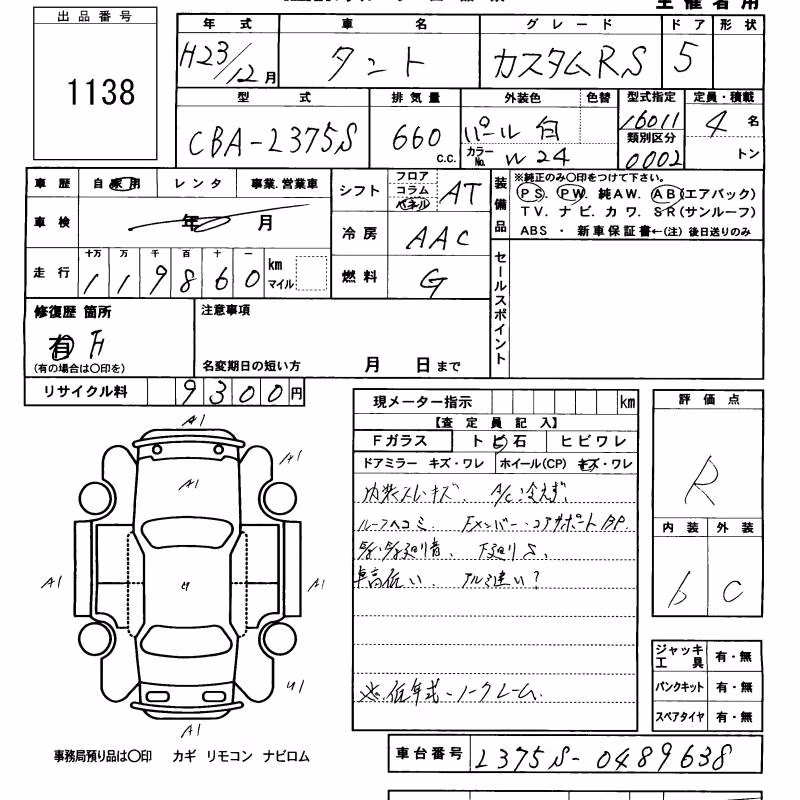 主催者用
出品番号
1138
年式 車名 グレード ドア 形状
H23/12月 タント カスタムRS 5
型式 排気量 外装色 色替 型式指定 定員・積載
CBA-L375S 660 c.c. パール白 16011 4名
カラーNo. W24 類別区分 0002 トン
車歴 自家用 レンタ 事業.営業車
車検 年 月
走行 十万 万 千 百 十 一
119860 km マイル
シフト フロア コラム パネル AT
冷房 AAC
燃料 G
装備品 ※純正のみ〇印をつけて下さい。
PS. PW. 純AW. AB(エアバック)
TV. ナビ. カワ. SR(サンルーフ)
ABS ・ 新車保証書←(注) 後日送りのみ
セールスポイント
修復歴 箇所
有
(有の場合は〇印を)
注意事項
名変期日の短い方 月 日まで
リサイクル料 9300円
現メーター指示 km
【査定員記入】
Fガラス トビ石 ヒビワレ
ドアミラー キズ・ワレ ホイール(CP) キズ・ワレ
内装スレキズ. A/C冷えず.
ルーフヘコミ. Fメンバー・コアサポートBP.
車高低い、 アルミ違い?
低年式・ノークレーム.
評価点
R
内装 外装
b C
ジャッキ工具 有・無
パンクキット 有・無
スペアタイヤ 有・無
A1
A1
A1
A1
A1
U1
A1
事務局預り品は〇印 カギ リモコン ナビロム
車台番号 L375S-0489638